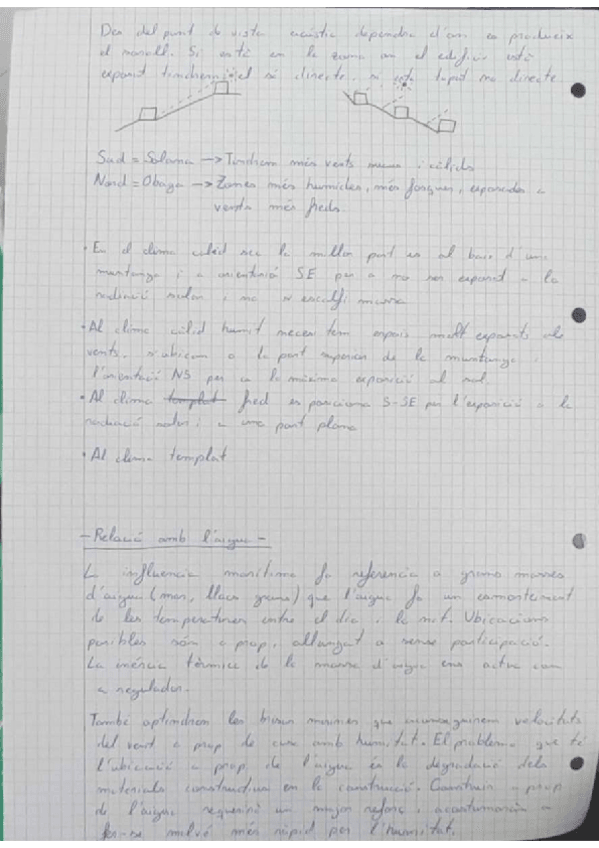 Des del punt de vista acústic dependrà d'on es produeix
el soroll. Si està en la zona on el edifici està
exposat tindrem el so directe, si està tapat no directe
Sud = Solana → Tindrem més vents i càlids
Nord = Obaga → Zones més humides, més fosques, exposades a
vents més freds.
· En el clima càlid sec la millor part es al baix d'una
muntanya i a orientació SE per a no ser exposat a la
radiació solar i no s'escalfi massa
· Al clima càlid humit necessitem espais molt exposats als
vents. s'ubicam a la part superior de la muntanya i
l'orientació NS per a la màxima exposició al sol.
· Al clima templat fred es posiciona S-SE per l'exposició a la
radiació solar i a una part plana
· Al clima templat
- Relació amb l'aigua -
L influencia maritima fa referencia a grans masses
d'aigua (mar, llacs grans) que l'aigua fa un esmortement
de les temperatures entre el dia i la nit. Ubicacions
posibles són a prop, allunyat a sense participació.
La inèrcia tèrmica de la massa d'aigua ens actua com
a regulador.
També optindrem les brises marines que aconseguirem velocitats
del vent a prop de amb humitat. El problema que té
l'ubicació a prop de l'aigua és la degradació dels
materials constructius en la construcció. Construir a prop
de l'aigua requerirà un major reforç i
fer-se malvé més ràpid per l'humitat.